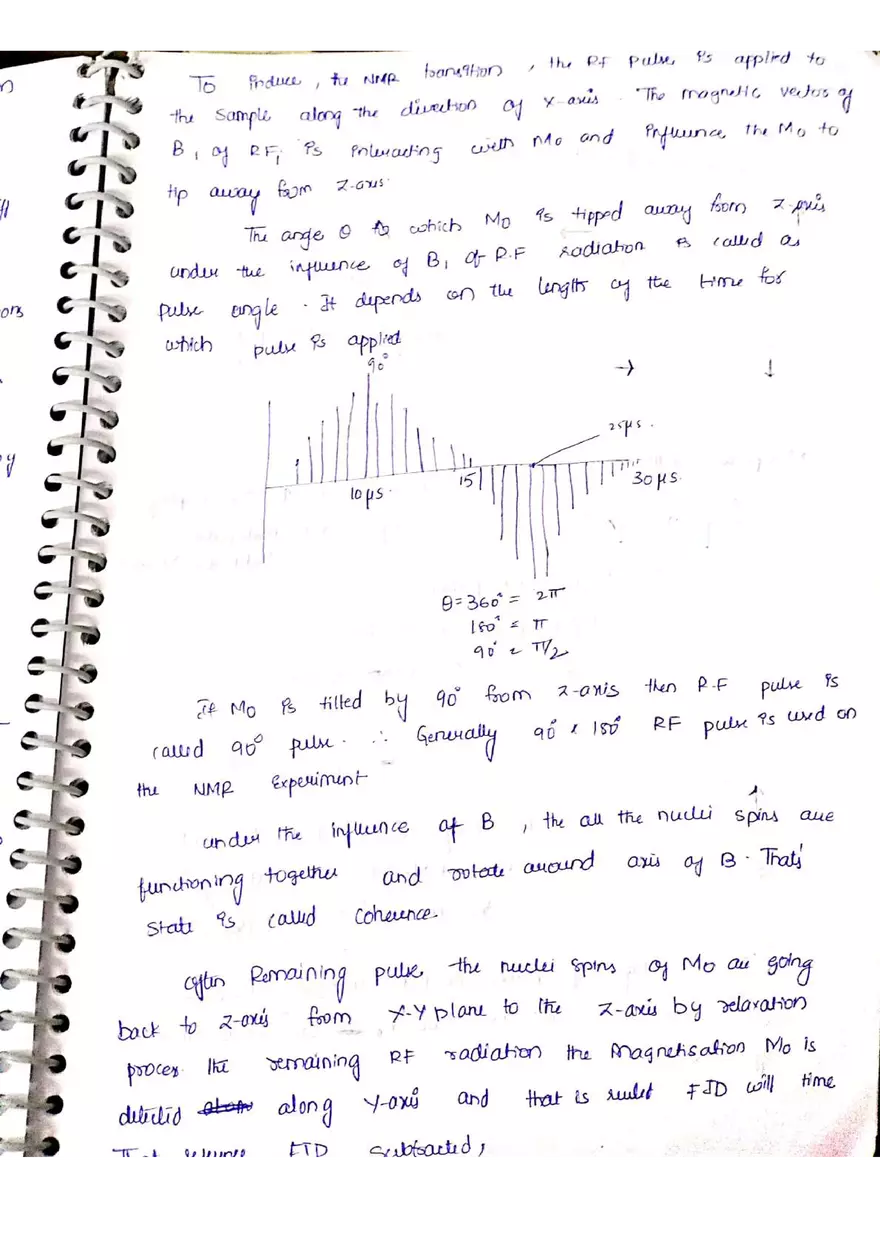 To produce, the NMR transition, the R.F pulse is applied to
the sample along the direction of X-axis. The magnetic vector of
B1 of RF, is interacting with Mo and influence the Mo to
tip away from Z-axis.
The ange θ to which Mo is tipped away from Z-axis
under the influence of B1 of R.F radiation is called as
pulse angle. It depends on the length of the time for
which pulse is applied
90°
→ ↓
25μs.
10 μs.
15
30 μs.
θ=360° = 2π
180° = π
90° = π/2
If Mo is tilted by 90° from Z-axis then R.F pulse is
called 90° pulse. ∴ Generally 90° & 180° RF pulse is used on
the NMR Experiment
under the influence of B, the all the nuclei spins are
functioning together and rotate around axis of B. That's
state is called coherence
after Remaining pulse the nuclei spins of Mo are going
back to Z-axis from X-Y plane to the Z-axis by relaxation
proces the remaining RF radiation the Magnetisation Mo is
detectid along Y-axis and that is reulet FID will time
FID subtracted,